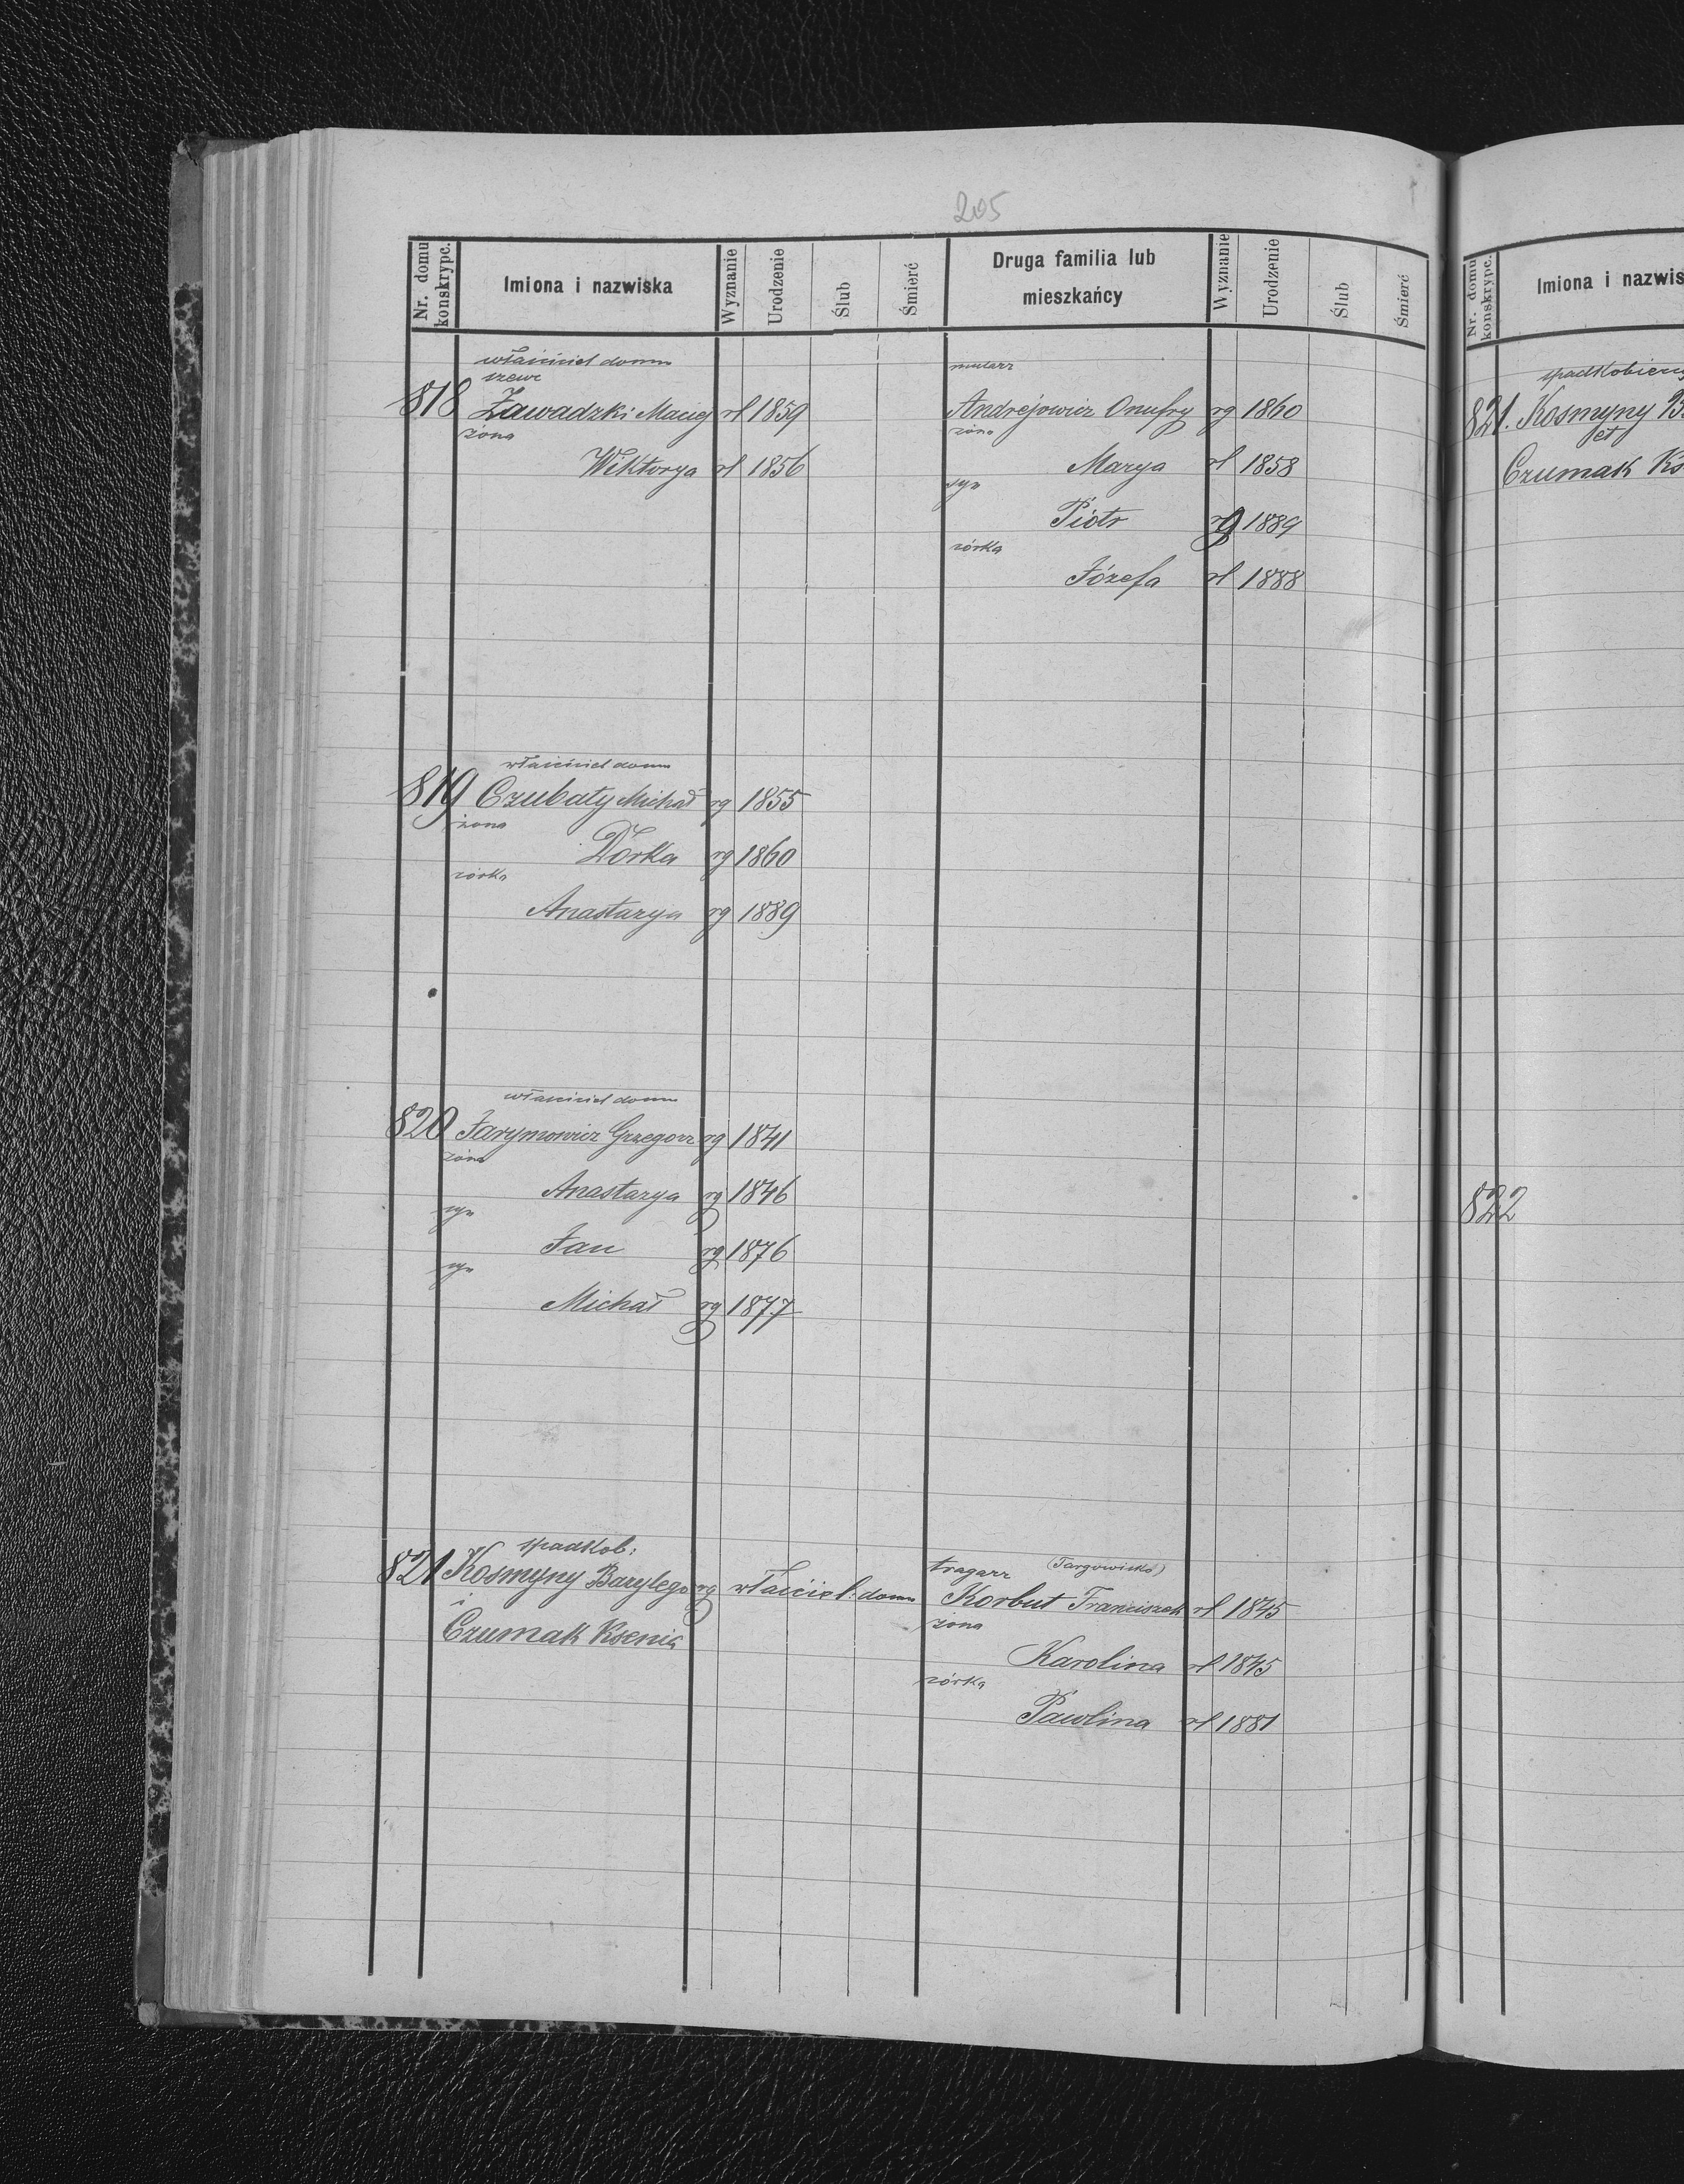 205
Nr. domu konskrypc.
Imiona i nazwiska
Wyznanie
Urodzenie
Ślub
Śmierć
Druga familia lub mieszkańcy
Wyznanie
Urodzenie
Ślub
Śmierć
właściciel domu
szewc
818 Zawadzki Maciej rł 1859
żona
Wiktorya rł 1856
mularz
Andrejowicz Onufry rg 1860
żona
Marya rł 1858
syn
Piotr rg 1889
córka
Józefa rł 1888
właściciel domu
819 Czubaty Michał rg 1855
żona
Dorka rg 1860
córka
Anastazya rg 1889
właściciel domu
820 Jarymowicz Grzegorz rg 1841
żona
Anastazya rg 1846
syn
Jan rg 1876
syn
Michał rg 1877
spadkob:
821 Kosmyny Bazylego rg właściciel: domu
i
Czumak Ksenia
tragarz (Targowisko)
Korbut Franciszek rł 1845
żona
Karolina rł 1845
córka
Pawlina rł 1881
Nr. domu konskrypc.
Imiona i nazwis
spadkobiercy
821. Kosmyny B
et
Czumak Ks
822